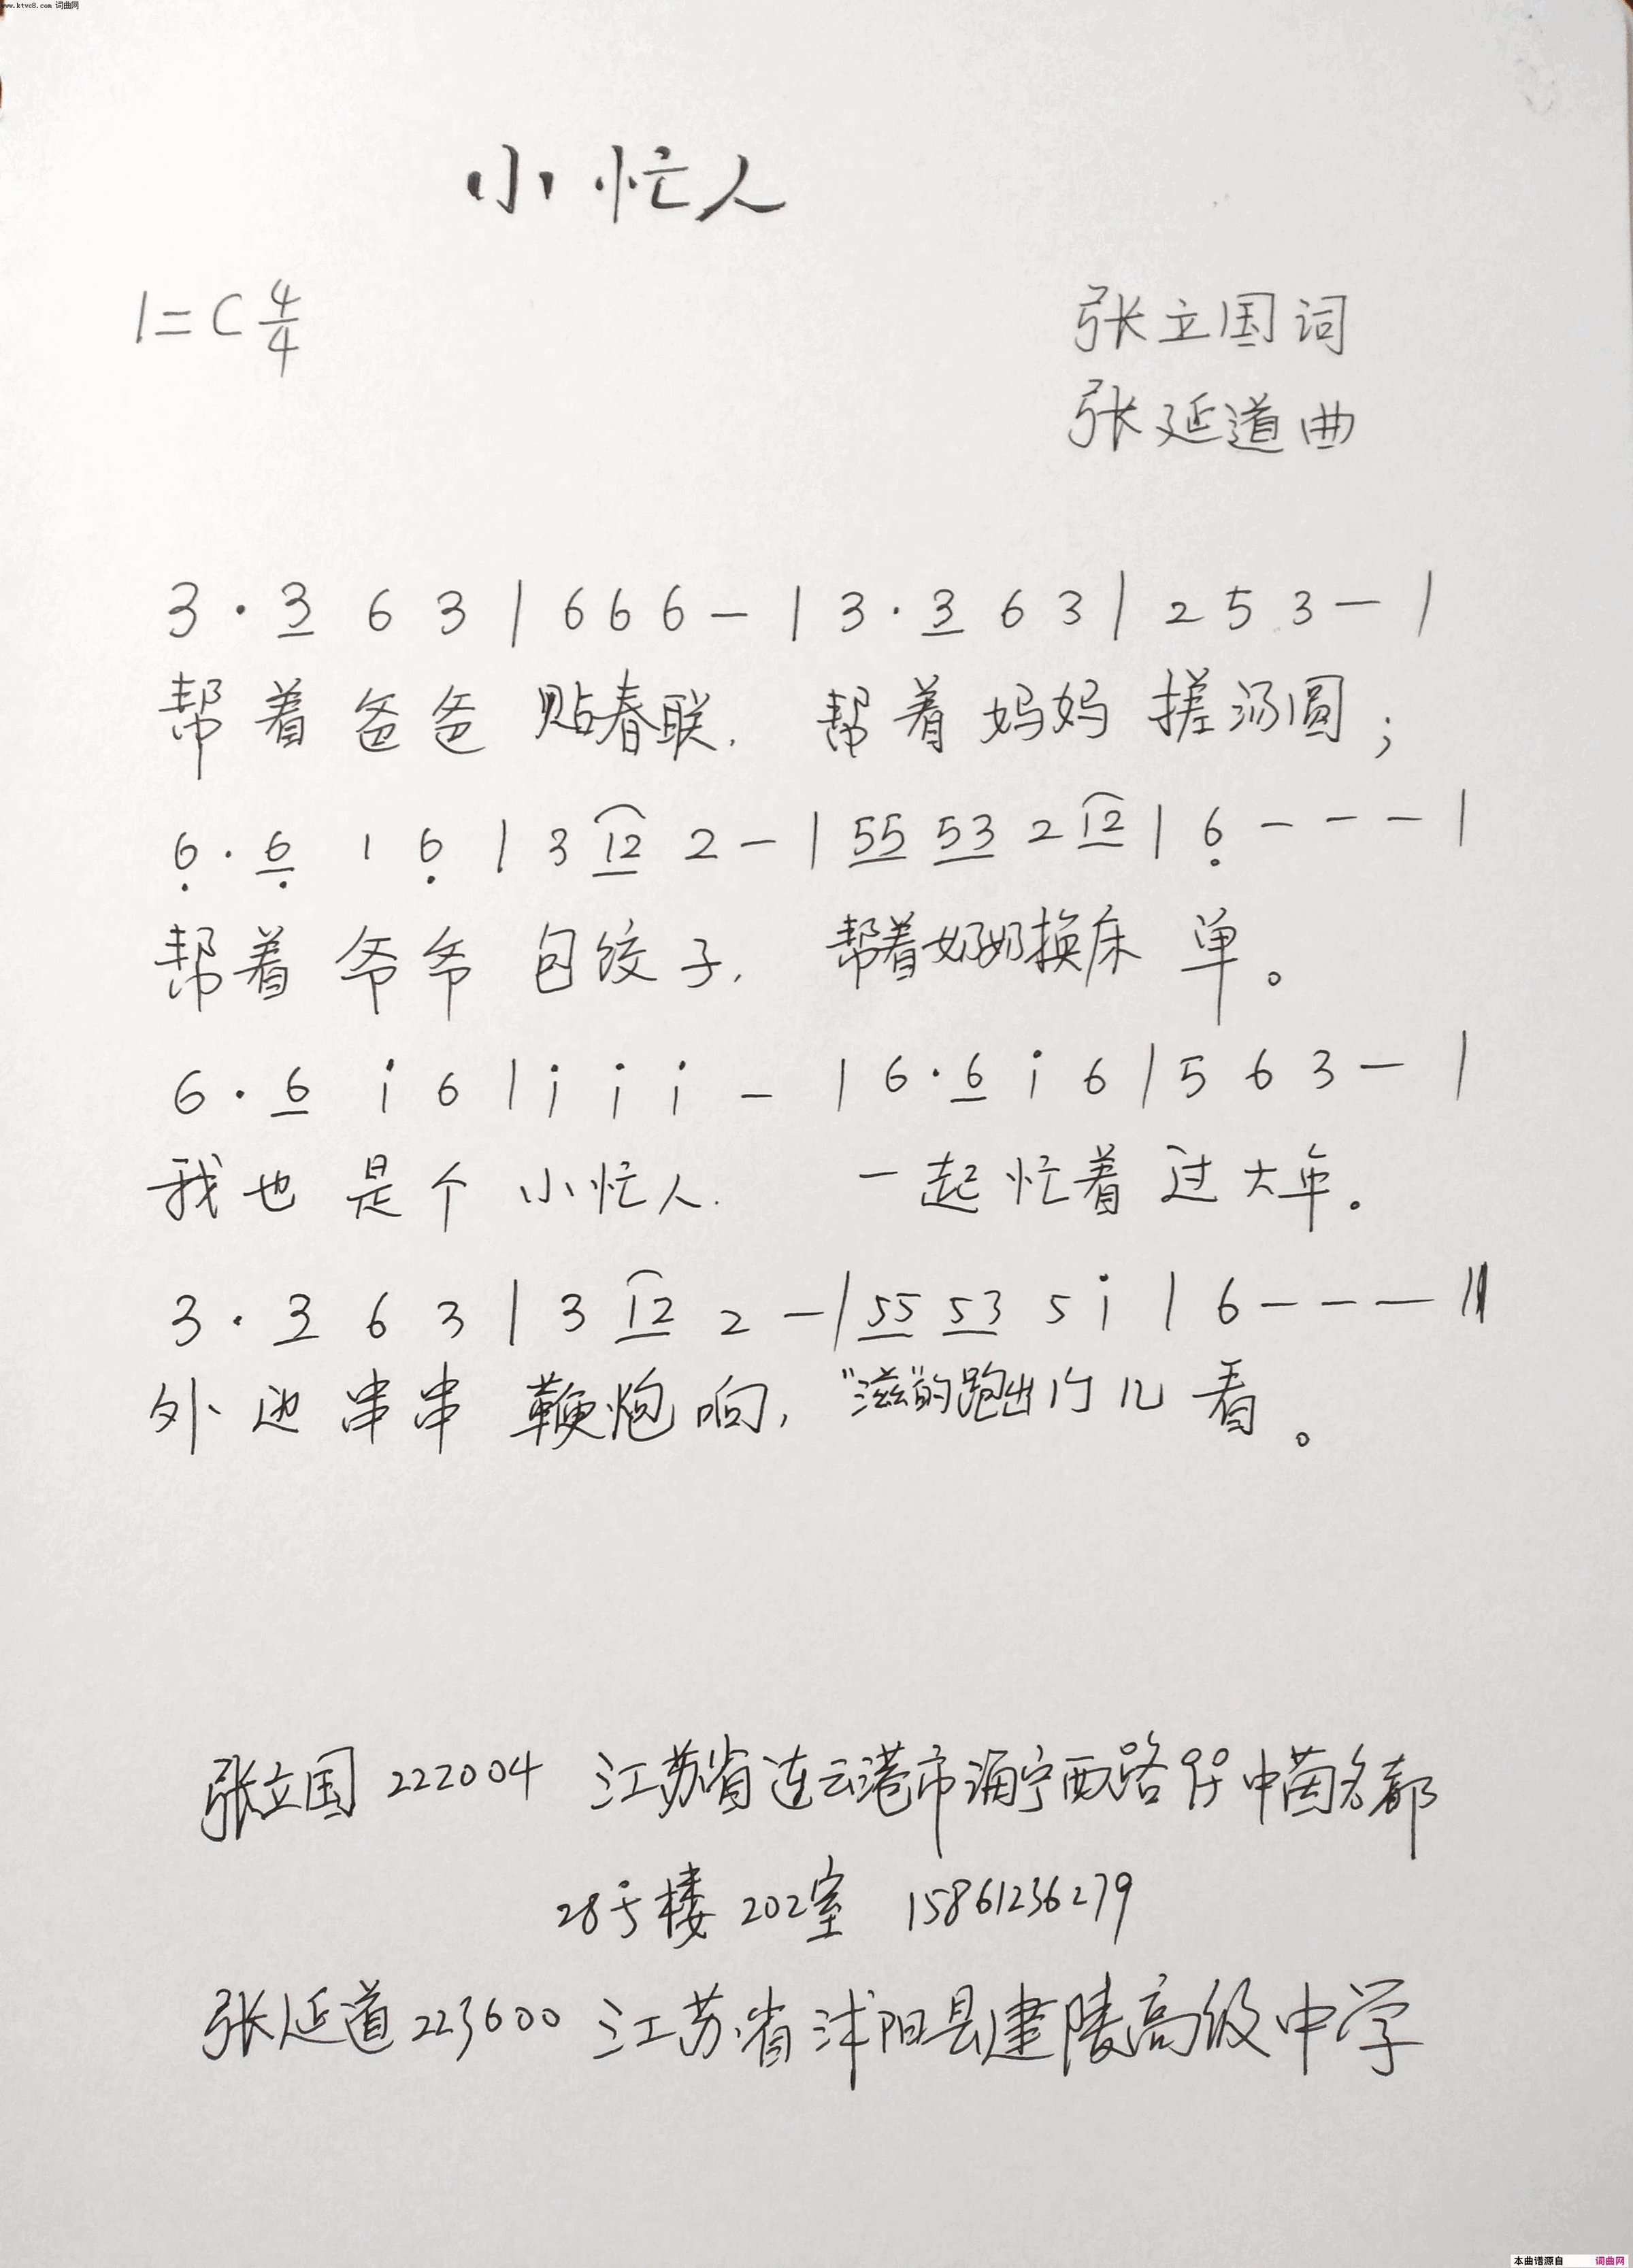 www.ktvc8.com 词曲网
小忙人
1=C 4/4
张立国词
张延道曲
3 · 3 6 3 | 6 6 6 - | 3 · 3 6 3 | 2 5 3 - |
帮着爸爸 贴春联, 帮着妈妈 搓汤圆;
6̣ · 6̣ 1 6̣ | 3 12 2 - | 55 53 2 12 | 6̣ - - - |
帮着爷爷 包饺子, 帮着奶奶换床 单。
6 · 6 i 6 | i i i - | 6 · 6 i 6 | 5 6 3 - |
我也是个 小忙人. 一起忙着过大年。
3 · 3 6 3 | 3 12 2 - | 55 53 5 i | 6 - - - ||
外边串串 鞭炮响, “滋”的跑出门儿 看。
张立国 222004 江苏省连云港市海宁西路99号中茵名都
28号楼 202室 15861236279
张延道 223600 江苏省沭阳县建陵高级中学
本曲谱源自 词曲网